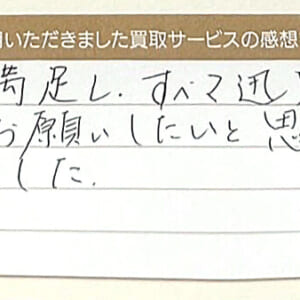 用いただきました買取サービスの感想
満足し、すべて迅
お願いしたいと思
した.